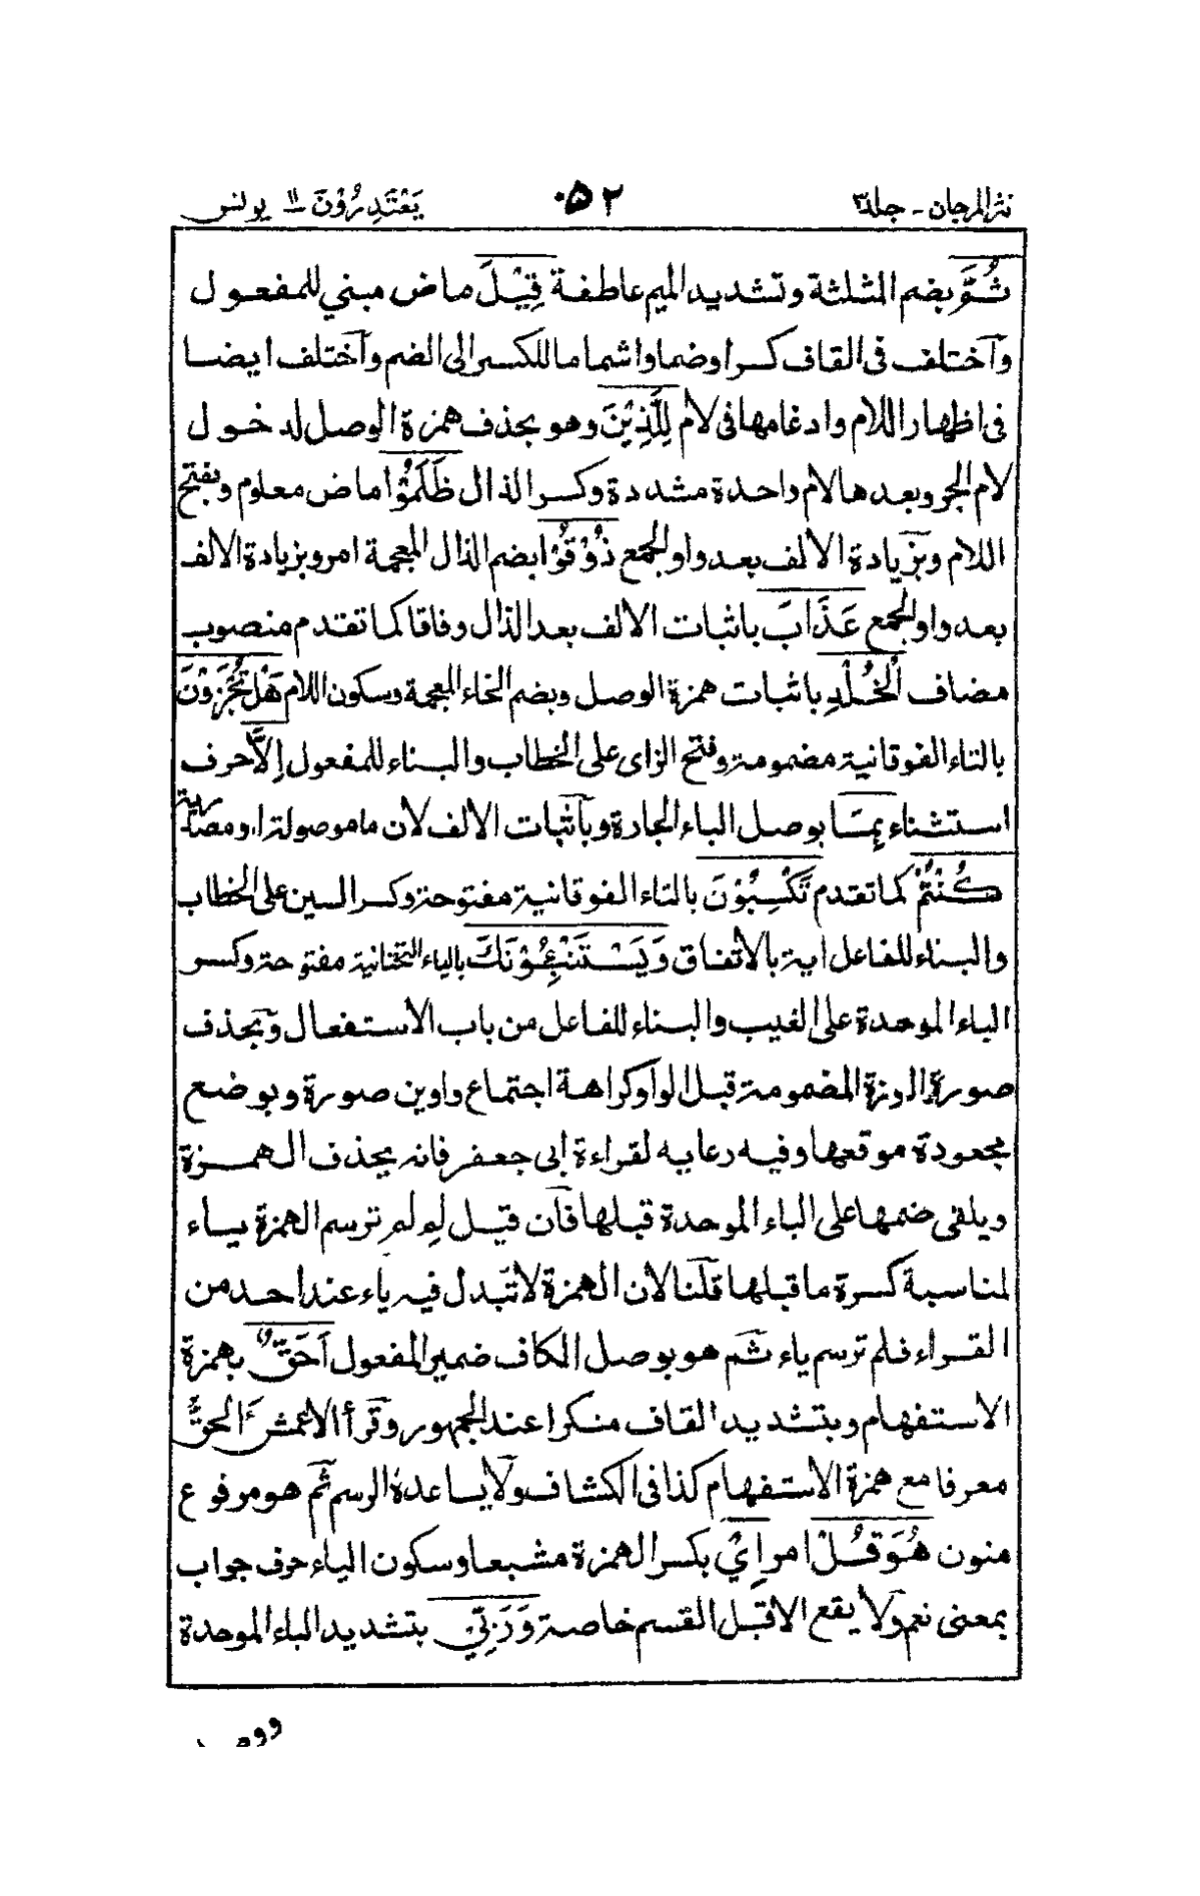 نثر المرجان - جلد ٣ ٥٢ يَعْتَذِرُوْنَ ١١ يونس
ثُمَّ بضم المثلثة وتشديد الميم عاطفة قِيْلَ ماض مبني للمفعول
واختلف فى القاف كسرا وضما واشماما للكسر الى الضم واختلف ايضا
فى اظهار اللام وادغامها فى لام لِلَّذِيْنَ وهو بحذف همزة الوصل لدخول
لام الجر وبعدها لام واحدة مشددة وكسر الذال ظَلَمُوْا ماض معلوم وبفتح
اللام وبزيادة الالف بعد واو الجمع ذُوْقُوْا بضم الذال المعجمة امر وبزيادة الالف
بعد واو الجمع عَذَابَ باثبات الالف بعد الذال وفاقا كما تقدم منصوب
مضاف الْخُلْدِ باثبات همزة الوصل وبضم الخاء المعجمة وسكون اللام هَلْ تُجْزَوْنَ
بالتاء الفوقانية مضمومة وفتح الزاى على الخطاب والبناء للمفعول اِلَّا حرف
استثناء بِمَا بوصل الباء الجارة وباثبات الالف لان ما موصولة او مصدرية
كُنْتُمْ كما تقدم تَكْسِبُوْنَ بالتاء الفوقانية مفتوحة وكسر السين على الخطاب
والبناء للفاعل اية بالاتفاق وَيَسْتَنْبِـُٔوْنَكَ بالياء التحتانية مفتوحة وكسر
الباء الموحدة على الغيب والبناء للفاعل من باب الاستفعال وبحذف
صورة الهمزة المضمومة قبل الواو كراهة اجتماع واوين صورة وبوضع
مجعودة موقعها وفيه رعاية لقراءة ابى جعفر فانه يحذف الهمزة
ويلقى ضمها على الباء الموحدة قبلها فان قيل لم لم ترسم الهمزة بياء
لمناسبة كسرة ما قبلها قلنا لان الهمزة لا تبدل فيه ياء عند احد من
القراء فلم ترسم ياء ثم هو بوصل الكاف ضمير المفعول اَحَقٌّ بهمزة
الاستفهام وبتشديد القاف منكرا عند الجمهور وقرأ الاعمش ءَالحقُّ
معرفا مع همزة الاستفهام كذا فى الكشاف ولا يساعده الرسم ثم هو مرفوع
منون هُوَ قُلْ امر اِيْ بكسر الهمزة مشبعا وسكون الياء حرف جواب
بمعنى نعم ولا يقع الا قبل القسم خاصة وَرَبِّيْ بتشديد الباء الموحدة